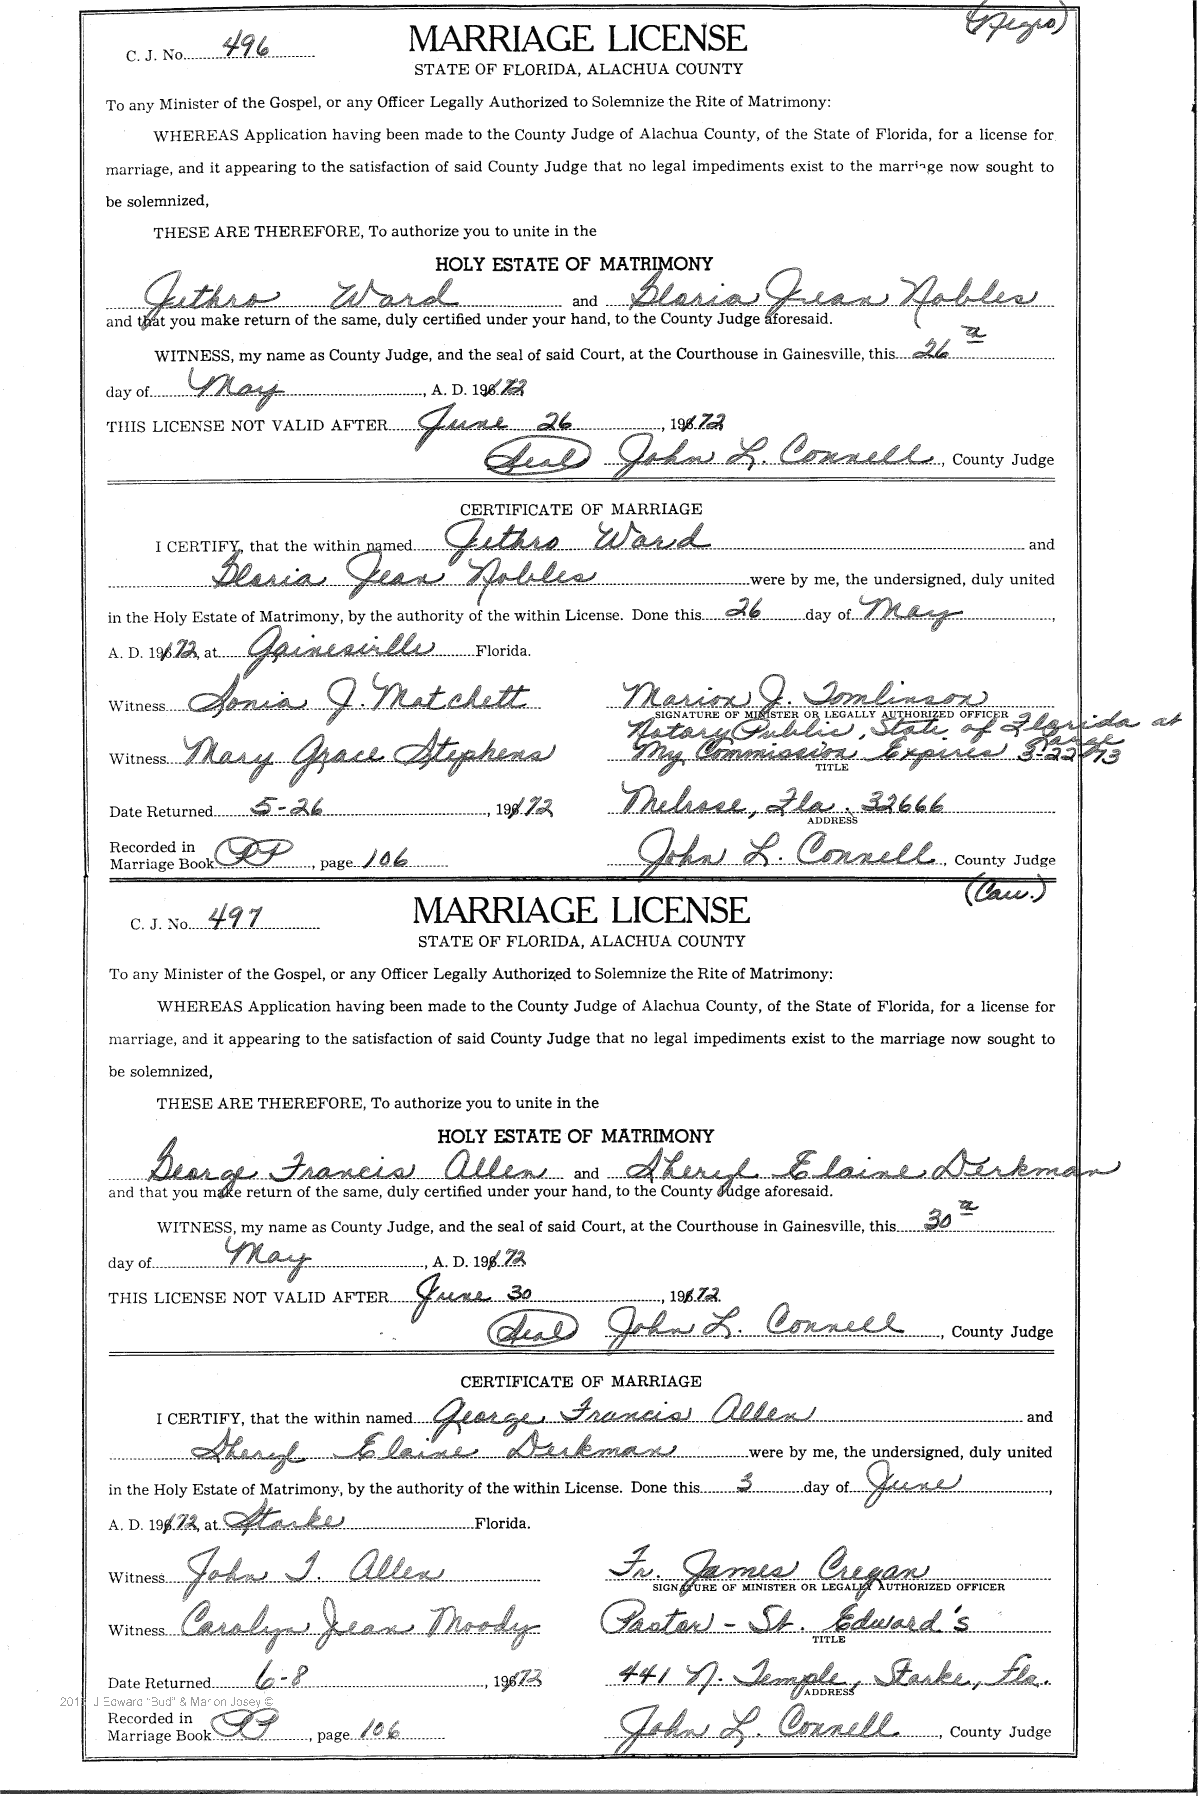 (Negro)
C. J. No. 496
MARRIAGE LICENSE
STATE OF FLORIDA, ALACHUA COUNTY
To any Minister of the Gospel, or any Officer Legally Authorized to Solemnize the Rite of Matrimony:
WHEREAS Application having been made to the County Judge of Alachua County, of the State of Florida, for a license for
marriage, and it appearing to the satisfaction of said County Judge that no legal impediments exist to the marriage now sought to
be solemnized,
THESE ARE THEREFORE, To authorize you to unite in the
HOLY ESTATE OF MATRIMONY
Jethro Ward and Gloria Jean Nobles
and that you make return of the same, duly certified under your hand, to the County Judge aforesaid.
WITNESS, my name as County Judge, and the seal of said Court, at the Courthouse in Gainesville, this 26
day of May, A. D. 1972
THIS LICENSE NOT VALID AFTER June 26, 1972
(Seal) John L. Connell, County Judge
CERTIFICATE OF MARRIAGE
I CERTIFY, that the within named Jethro Ward and
Gloria Jean Nobles were by me, the undersigned, duly united
in the Holy Estate of Matrimony, by the authority of the within License. Done this 26 day of May,
A. D. 1972, at Gainesville Florida.
Witness Sonia J. Matchett Marion J. Tomlinson
SIGNATURE OF MINISTER OR LEGALLY AUTHORIZED OFFICER
Notary Public, State of Florida at Large
Witness Mary Grace Stephens My Commission Expires 3-22-73
TITLE
Date Returned 5-26, 1972 Melrose, Fla. 32666
ADDRESS
Recorded in
Marriage Book PP, page 106 John L. Connell, County Judge
(Cau.)
C. J. No. 497
MARRIAGE LICENSE
STATE OF FLORIDA, ALACHUA COUNTY
To any Minister of the Gospel, or any Officer Legally Authorized to Solemnize the Rite of Matrimony:
WHEREAS Application having been made to the County Judge of Alachua County, of the State of Florida, for a license for
marriage, and it appearing to the satisfaction of said County Judge that no legal impediments exist to the marriage now sought to
be solemnized,
THESE ARE THEREFORE, To authorize you to unite in the
HOLY ESTATE OF MATRIMONY
George Francis Allen and Sheryl Elaine Derkman
and that you make return of the same, duly certified under your hand, to the County Judge aforesaid.
WITNESS, my name as County Judge, and the seal of said Court, at the Courthouse in Gainesville, this 30
day of May, A. D. 1972
THIS LICENSE NOT VALID AFTER June 30, 1972
(Seal) John L. Connell, County Judge
CERTIFICATE OF MARRIAGE
I CERTIFY, that the within named George Francis Allen and
Sheryl Elaine Derkman were by me, the undersigned, duly united
in the Holy Estate of Matrimony, by the authority of the within License. Done this 3 day of June,
A. D. 1972, at Starke Florida.
Witness John T. Allen Fr. James Cregan
SIGNATURE OF MINISTER OR LEGALLY AUTHORIZED OFFICER
Witness Carolyn Jean Moody Pastor - St. Edward's
TITLE
Date Returned 6-8, 1972 441 N. Temple, Starke, Fla.
ADDRESS
J Edward "Bud" & Marion Josey ©
Recorded in
Marriage Book PP, page 106 John L. Connell, County Judge